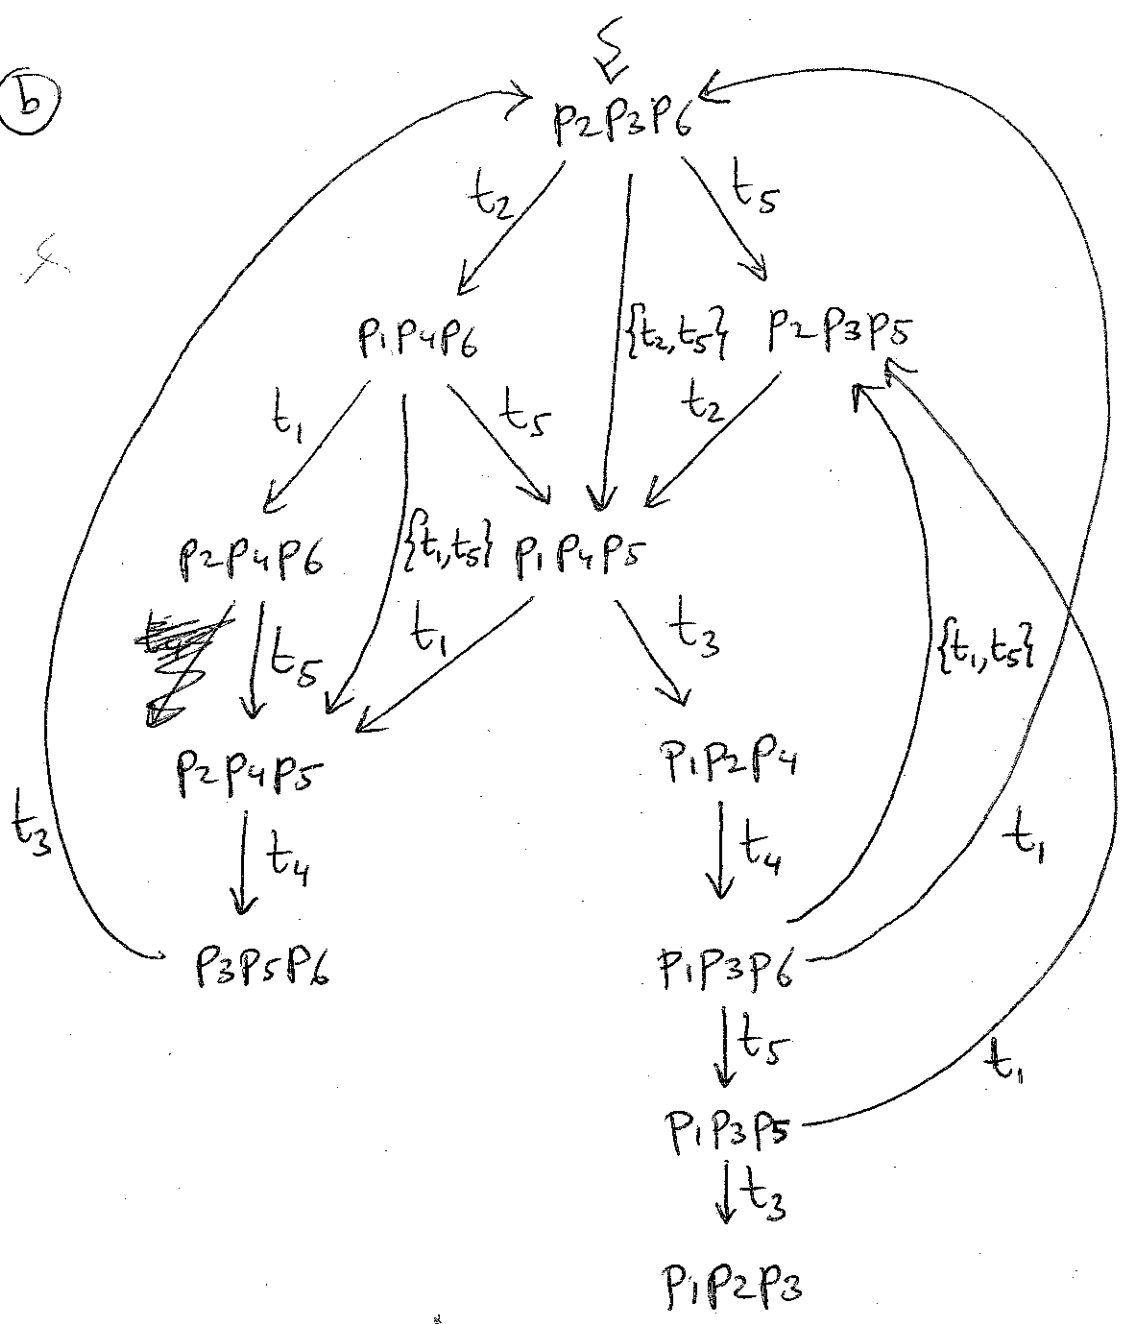 b
P2P3P6
t2 t5
P1P4P6 {t2,t5} P2P3P5
t1 t5 t2
P2P4P6 {t1,t5} P1P4P5
t5 t1 t3 {t1,t5}
P2P4P5 P1P2P4
t3 t4 t4 t1
P3P5P6 P1P3P6
t5 t1
P1P3P5
t3
P1P2P3